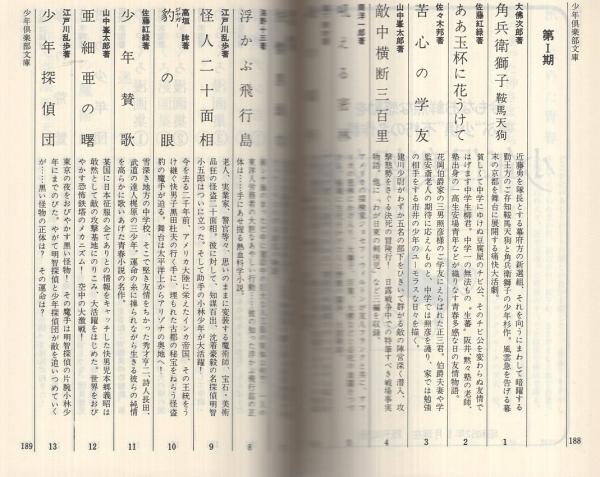 少年倶楽部文庫
188
第Ⅰ期
大佛次郎著
角兵衛獅子 鞍馬天狗
近藤勇を隊長とする幕府方の新選組、それを向うにまわして暗躍する
勤王方のご存知鞍馬天狗と角兵衛獅子の少年杉作。風雲急を告げる幕
末の京都を舞台に展開する痛快大活劇。
1
佐藤紅緑著
ああ玉杯に花うけて
貧しくて中学にゆけぬ豆腐屋のチビ公、そのチビ公を変わらぬ友情で
はげます中学生柳君。中学一の無法もの〝生蕃〟阪井、黙々塾の老師、
塾出身の一高生安場青年などが織りなす青春多感な日の友情物語。
2
佐々木邦著
苦心の学友
花岡伯爵家の三男照彦様のご学友にえらばれた正三君。伯爵夫妻や学
監安斎老人の期待に応えんものと、中学では照彦を護り、家では勉強
の相手をする市井の少年のユーモラスな日々を描く。
3
山中峯太郎著
敵中横断三百里
建川少尉がわずか五名の部下をひきいて群がる敵の陣営深く潜入、攻
撃態勢をさぐる決死の冒険行！ 日露戦争中での特筆すべき戦場事実
物語。他に
4
海野十三著
浮かぶ飛行島
体は……手にあせ握る熱血科学小説。
8
江戸川乱歩著
怪人二十面相
老人、実業家、警官等々、思いのままに変装する魔術師、宝石・美術
品狂の怪盗二十面相。彼に対して、知謀百出、沈着豪毅の名探偵明智
小五郎はついに立った。そして助手の小林少年が大活躍！
9
高垣 眸著
豹の眼
ジャガー
今を去る二千年前、アメリカ大陸に栄えたインカ帝国、その王統をう
け継ぐ快男子黒田杜夫の行く手に、埋もれた古都の秘宝をねらう怪盗
豹の魔手が迫る。舞台は太平洋上からアリゾナの奥地へ！
10
佐藤紅緑著
少年讃歌
雪深き地方の中学校、そこで堅き友情をちかった秀才亨二、詩人長田、
武道の達人梶原の三少年。運命の糸に操られながら生きる彼らの純情
を高らかに歌いあげた青春小説の名作。
11
山中峯太郎著
亜細亜の曙
某国に日本征服の企てありとの情報をキャッチした快男児本郷義昭は
敢然として敵の攻撃基地にのりこみ、大活躍をはじめた。世界をおび
やかす恐怖鉄塔のメカニズム！ 空中の大激戦！
12
江戸川乱歩著
少年探偵団
東京の夜をおびやかす黒い怪物！ その魔手は明智探偵の片腕小林少
年にまでのびた。やがて明智探偵と少年探偵団が敵を追いつめていく
が……黒い怪物の正体は？ その運命は？
13
189
少年倶楽部文庫